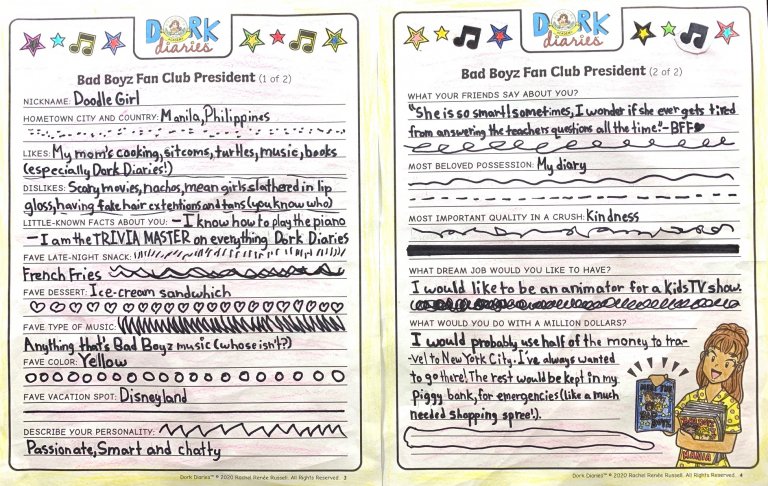 DORK diaries
Bad Boyz Fan Club President (1 of 2)
NICKNAME: Doodle Girl
HOMETOWN CITY AND COUNTRY: Manila, Philippines
LIKES: My mom's cooking, sitcoms, turtles, music, books
(especially Dork Diaries!)
DISLIKES: Scary movies, nachos, mean girls slathered in lip
gloss, having fake hair extentions and tans (you know who)
LITTLE-KNOWN FACTS ABOUT YOU: – I know how to play the piano
– I am the TRIVIA MASTER on everything Dork Diaries
FAVE LATE-NIGHT SNACK:
French Fries
FAVE DESSERT: Ice-cream sandwhich
FAVE TYPE OF MUSIC:
Anything that's Bad Boyz music (whose isn't?)
FAVE COLOR: Yellow
FAVE VACATION SPOT: Disneyland
DESCRIBE YOUR PERSONALITY:
Passionate, Smart and chatty
Dork Diaries™ © 2020 Rachel Renée Russell. All Rights Reserved. 3
DORK diaries
Bad Boyz Fan Club President (2 of 2)
WHAT YOUR FRIENDS SAY ABOUT YOU?
"She is so smart! sometimes, I wonder if she ever gets tired
from answering the teachers questions all the time." - BFF
MOST BELOVED POSSESSION: My diary
MOST IMPORTANT QUALITY IN A CRUSH: Kindness
WHAT DREAM JOB WOULD YOU LIKE TO HAVE?
I would like to be an animator for a Kids TV show.
WHAT WOULD YOU DO WITH A MILLION DOLLARS?
I would probably use half of the money to tra-
-vel to New York City. I've always wanted
to go there! The rest would be kept in my
piggy bank, for emergencies (like a much
needed shopping spree!).
BAD
BOYZ
MANIA
Dork Diaries™ © 2020 Rachel Renée Russell. All Rights Reserved. 4